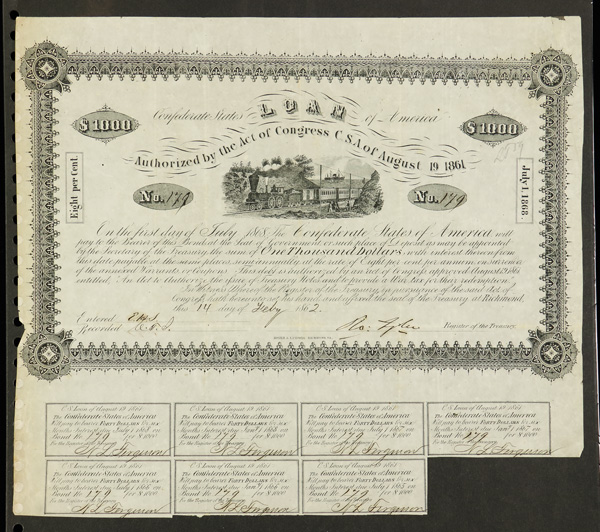 LOAN
Confederate States of America
$1000 $1000
Authorized by the Act of Congress C.S.A. of August 19 1861
2519
Eight per Cent.
July 1 1868
No. 179 No. 179
On the first day of July 1868 the Confederate States of America will
pay to the Bearer of this Bond at the Seat of Government or such place of Deposit as may be appointed
by the Secretary of the Treasury, the sum of One Thousand Dollars, with interest thereon from
this date payable at the same place, semi-annually at the rate of Eight per cent per annum on surrender
of the annexed Warrants or Coupons. This debt is authorized by an act of Congress approved August 19 1861
entitled, An Act to authorize the issue of Treasury Notes and to provide a War Tax for their redemption.
In Witness Whereof the Register of the Treasury in pursuance of the said Act of
Congress hath hereunto set his hand and affixed the seal of the Treasury at Richmond,
this 14 day of Feby 1862.
Entered
Recorded
Ro: Tyler Register of the Treasury
C.S. Loan of August 19 1861
The Confederate States of America
Will pay to bearer Forty Dollars for six
Months Interest due July 1 1868 on
Bond No 179 for $1000
For the Register of the Treasury
H.L. Ferguson
C.S. Loan of August 19 1861
The Confederate States of America
Will pay to bearer Forty Dollars for six
Months Interest due Jany 1 1868 on
Bond No 179 for $1000
For the Register of the Treasury
H.L. Ferguson
C.S. Loan of August 19 1861
The Confederate States of America
Will pay to bearer Forty Dollars for six
Months Interest due July 1 1867 on
Bond No 179 for $1000
For the Register of the Treasury
H.L. Ferguson
C.S. Loan of August 19 1861
The Confederate States of America
Will pay to bearer Forty Dollars for six
Months Interest due Jany 1 1867 on
Bond No 179 for $1000
For the Register of the Treasury
H.L. Ferguson
C.S. Loan of August 19 1861
The Confederate States of America
Will pay to bearer Forty Dollars for six
Months Interest due July 1 1866 on
Bond No 179 for $1000
For the Register of the Treasury
H.L. Ferguson
C.S. Loan of August 19 1861
The Confederate States of America
Will pay to bearer Forty Dollars for six
Months Interest due Jany 1 1866 on
Bond No 179 for $1000
For the Register of the Treasury
H.L. Ferguson
C.S. Loan of August 19 1861
The Confederate States of America
Will pay to bearer Forty Dollars for six
Months Interest due July 1 1865 on
Bond No 179 for $1000
For the Register of the Treasury
H.L. Ferguson